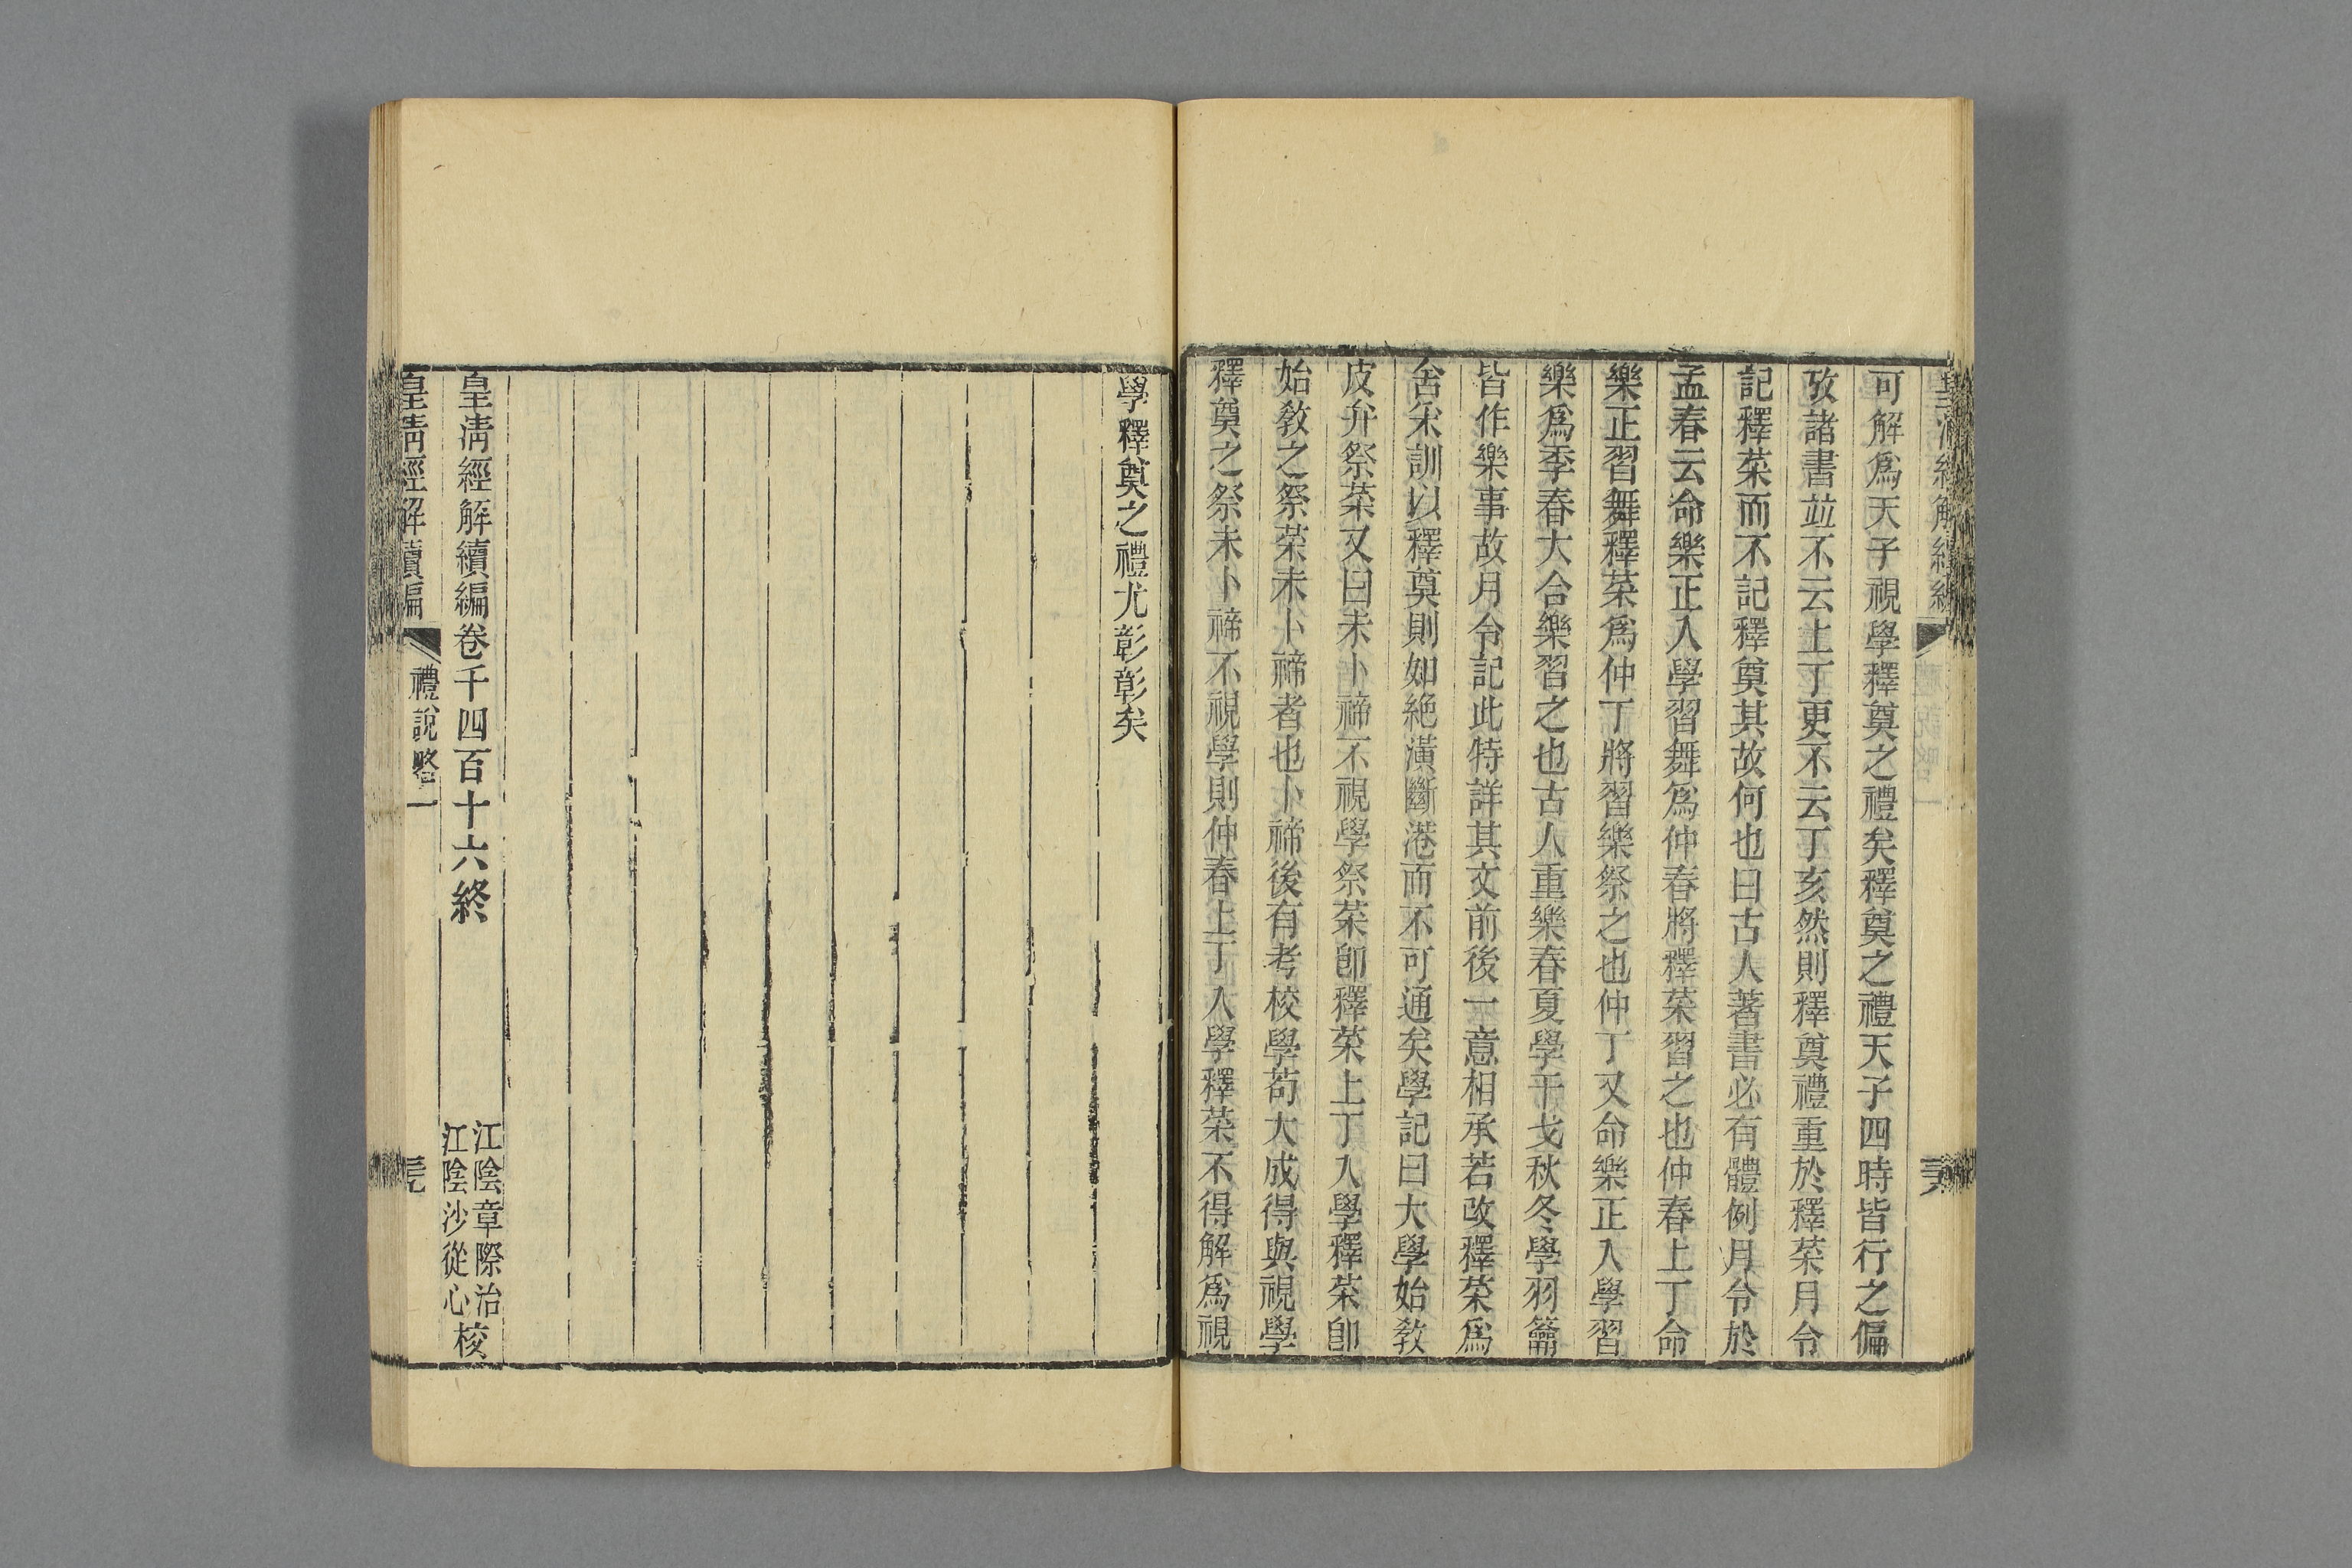 可解爲天子視學釋奠之禮矣釋奠之禮天子四時皆行之偏
攷諸書並不云上丁更不云丁亥然則釋奠禮重於釋菜月令
記釋菜而不記釋奠其故何也曰古人著書必有體例月令於
孟春云命樂正入學習舞爲仲春將釋菜習之也仲春上丁命
樂正習舞釋菜爲仲丁將習樂祭之也仲丁又命樂正入學習
樂爲季春大合樂習之也古人重樂春夏學干戈秋冬學羽籥
皆作樂事故月令記此特詳其文前後一意相承若改釋菜爲
舍采訓以釋奠則如絶潢斷港而不可通矣學記曰大學始敎
皮弁祭菜又曰未卜禘不視學祭菜卽釋菜上丁入學釋菜卽
始敎之祭菜未卜禘者也卜禘後有考校學苟大成得與視學
釋奠之祭未卜禘不視學則仲春上丁入學釋菜不得解爲視
學釋奠之禮尤彰彰矣
皇淸經解續編卷千四百十六終
江陰章際治
江陰沙從心校
皇淸經解續編
禮說略一